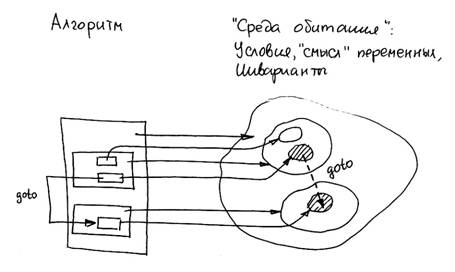 Алгоритм
"Среда обитания":
Условие, "смысл" переменных,
Инварианты
goto
goto